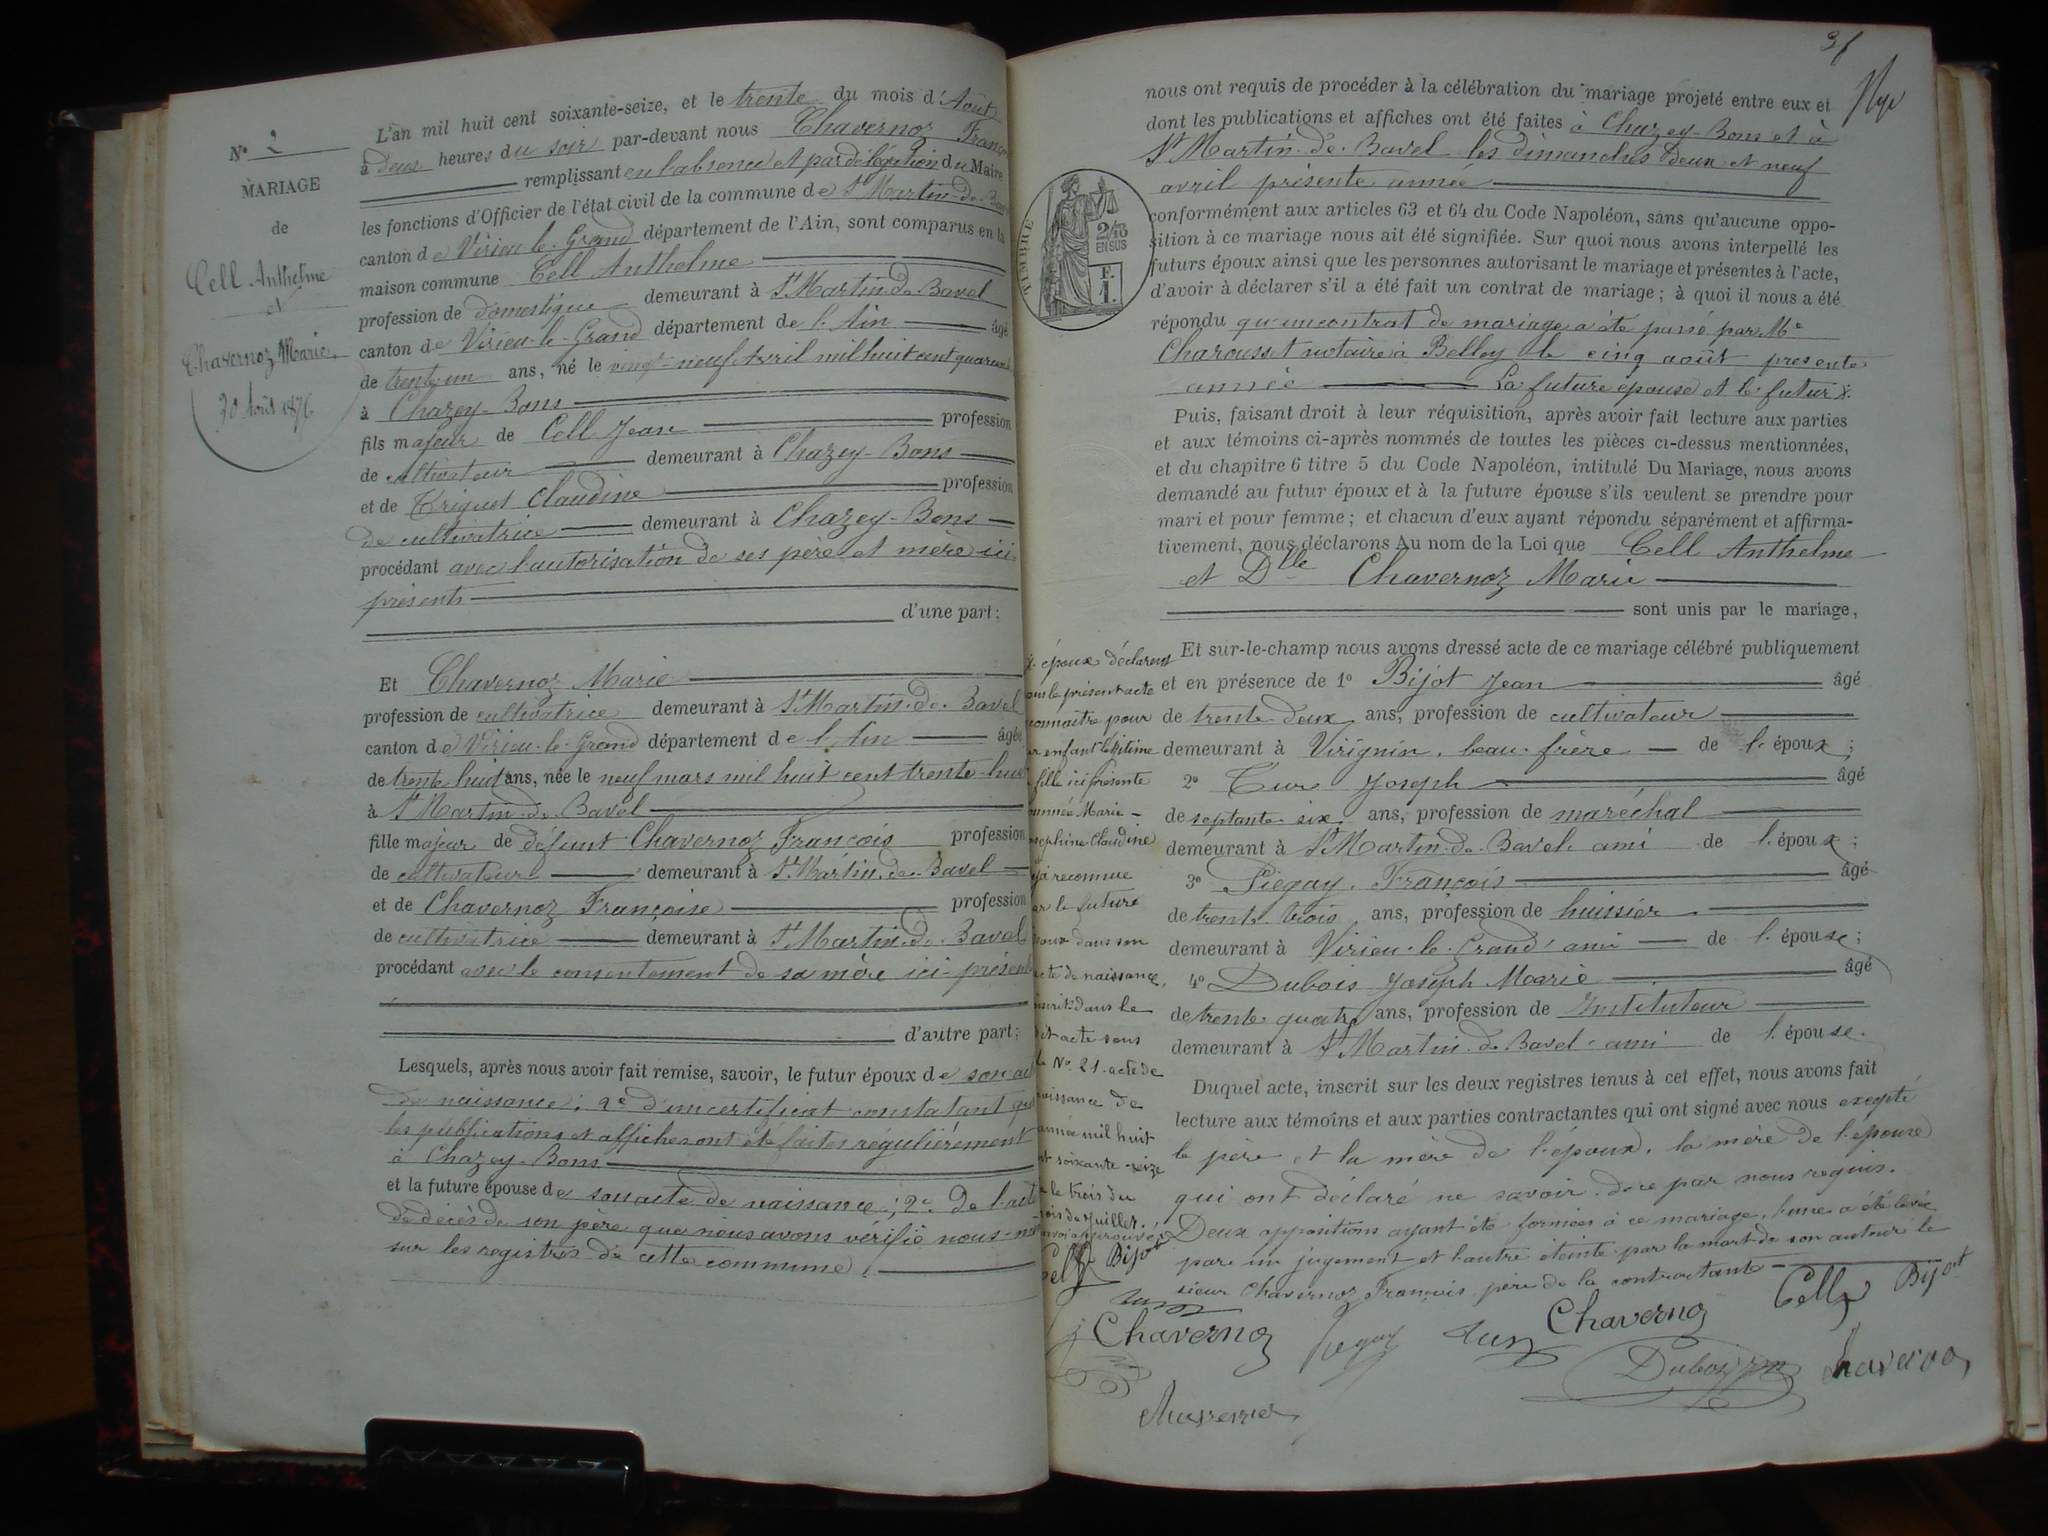 N° 2
MARIAGE
de
Cell Anthelme
et
Chavernoz Marie
30 Août 1876
L'an mil huit cent soixante-seize, et le trente du mois d'Août
à deux heures du soir par-devant nous Chavernoz Franç
remplissant en l'absence et par délégation du Maire
les fonctions d'Officier de l'état civil de la commune de St Martin-de-Bav
canton de Virieu-le-Grand département de l'Ain, sont comparus en la
maison commune Cell Anthelme
profession de domestique demeurant à St Martin-de-Bavel
canton de Virieu-le-Grand département de l'Ain âgé
de trente-un ans, né le vingt-neuf Avril mil huit cent quarant
à Chazey-Bons
fils majeur de Cell Jean profession
de cultivateur demeurant à Chazey-Bons
et de Triquet Claudine profession
de cultivatrice demeurant à Chazey-Bons
procédant avec l'autorisation de ses père et mère ici
présents
d'une part;
Et Chavernoz Marie
profession de cultivatrice demeurant à St Martin-de-Bavel
canton de Virieu-le-Grand département de l'Ain âgée
de trente huit ans, née le neuf mars mil huit cent trente-hui
à St Martin-de-Bavel
fille majeur de défunt Chavernoz François profession
de cultivateur demeurant à St Martin-de-Bavel
et de Chavernoz Françoise profession
de cultivatrice demeurant à St Martin-de-Bavel
procédant avec le consentement de sa mère ici-présent
d'autre part;
Lesquels, après nous avoir fait remise, savoir, le futur époux de son ac
de naissance; 2° d'un certificat constatant que
les publications et affiches ont été faites régulièrement
à Chazey-Bons
et la future épouse de son acte de naissance; 2° de l'acte
de décès de son père que nous avons vérifié nous-m
sur les registres de cette commune.
nous ont requis de procéder à la célébration du mariage projeté entre eux et
dont les publications et affiches ont été faites à Chazey-Bons et à
St Martin-de-Bavel les dimanches deux et neuf
avril présente année
TIMBRE
2/10
EN SUS
F.
1.
conformément aux articles 63 et 64 du Code Napoléon, sans qu'aucune oppo-
sition à ce mariage nous ait été signifiée. Sur quoi nous avons interpellé les
futurs époux ainsi que les personnes autorisant le mariage et présentes à l'acte,
d'avoir à déclarer s'il a été fait un contrat de mariage; à quoi il nous a été
répondu qu'un contrat de mariage a été passé par Me
Charousset notaire à Belley le cinq août présente
année La future épouse et le futur X.
Puis, faisant droit à leur réquisition, après avoir fait lecture aux parties
et aux témoins ci-après nommés de toutes les pièces ci-dessus mentionnées,
et du chapitre 6 titre 5 du Code Napoléon, intitulé Du Mariage, nous avons
demandé au futur époux et à la future épouse s'ils veulent se prendre pour
mari et pour femme; et chacun d'eux ayant répondu séparément et affirma-
tivement, nous déclarons Au nom de la Loi que Cell Anthelme
et Dlle Chavernoz Marie
sont unis par le mariage,
Et sur-le-champ nous avons dressé acte de ce mariage célébré publiquement
et en présence de 1° Bijot Jean âgé
de trente-deux ans, profession de cultivateur
demeurant à Virignin, beau-frère de l'époux;
2° Joseph âgé
de septante-six ans, profession de maréchal
demeurant à St Martin-de-Bavel ami de l'époux;
3° Piegay François âgé
de trente-trois ans, profession de huissier
demeurant à Virieu-le-Grand ami de l'épouse;
4° Dubois Joseph Marie âgé
de trente-quatre ans, profession de Instituteur
demeurant à St Martin-de-Bavel ami de l'épouse.
Duquel acte, inscrit sur les deux registres tenus à cet effet, nous avons fait
lecture aux témoins et aux parties contractantes qui ont signé avec nous excepté
le père et la mère de l'époux, la mère de l'épouse
qui ont déclaré ne savoir de ce par nous requis.
Deux oppositions ayant été formées à ce mariage, l'une a été levée
par un jugement et l'autre éteinte par la mort de son auteur le
sieur Chavernoz François père de la contractante
X. époux déclarent
le présent acte
connaître pour
enfant légitime
fille ici présente
Marie-
Claudine
reconnue
par le futur
époux dans son
acte de naissance,
inscrit dans le
dit acte sous
le N° 21. acte de
naissance de
année mil huit
cent soixante-seize
le trois du
mois de Juillet.
approuvé
Cell Bijot
Chavernoz
Chavernoz
Cell
Bijot
Dubois